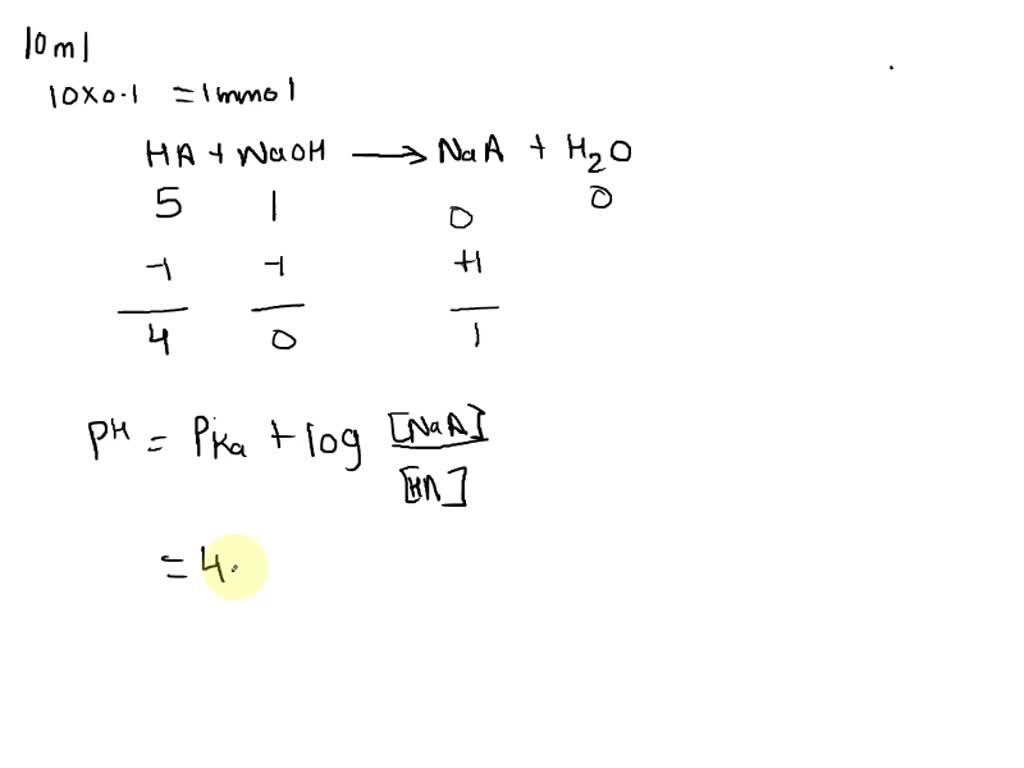 10ml
10x0.1 = 1mmol
HA + NaOH → NaA + H2O
5 1 0 0
-1 -1 +1
4 0 1
PH = PKa + log [NaA]
[HA]
= 4.